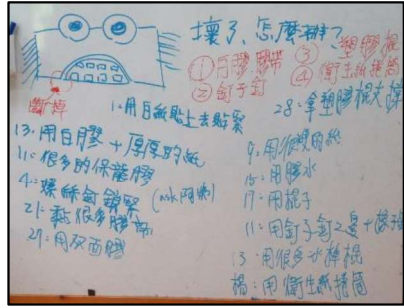 壞了,怎麼辦?
①白膠膠帶
③塑膠棍
②釘子釘
④衛生紙捲筒
斷掉
1:用白紙貼上去貼緊
28:拿塑膠棍支撐
13:用白膠+厚厚的紙
11:很多的保龍膠
4:螺絲釘鎖緊
21:黏很多膠帶
29:用双面膠
9:用很硬的紙
15:用膠水
17:用棍子
11:用釘子釘之最+
13:用很多水棒棍
楊:用衛生紙捲筒